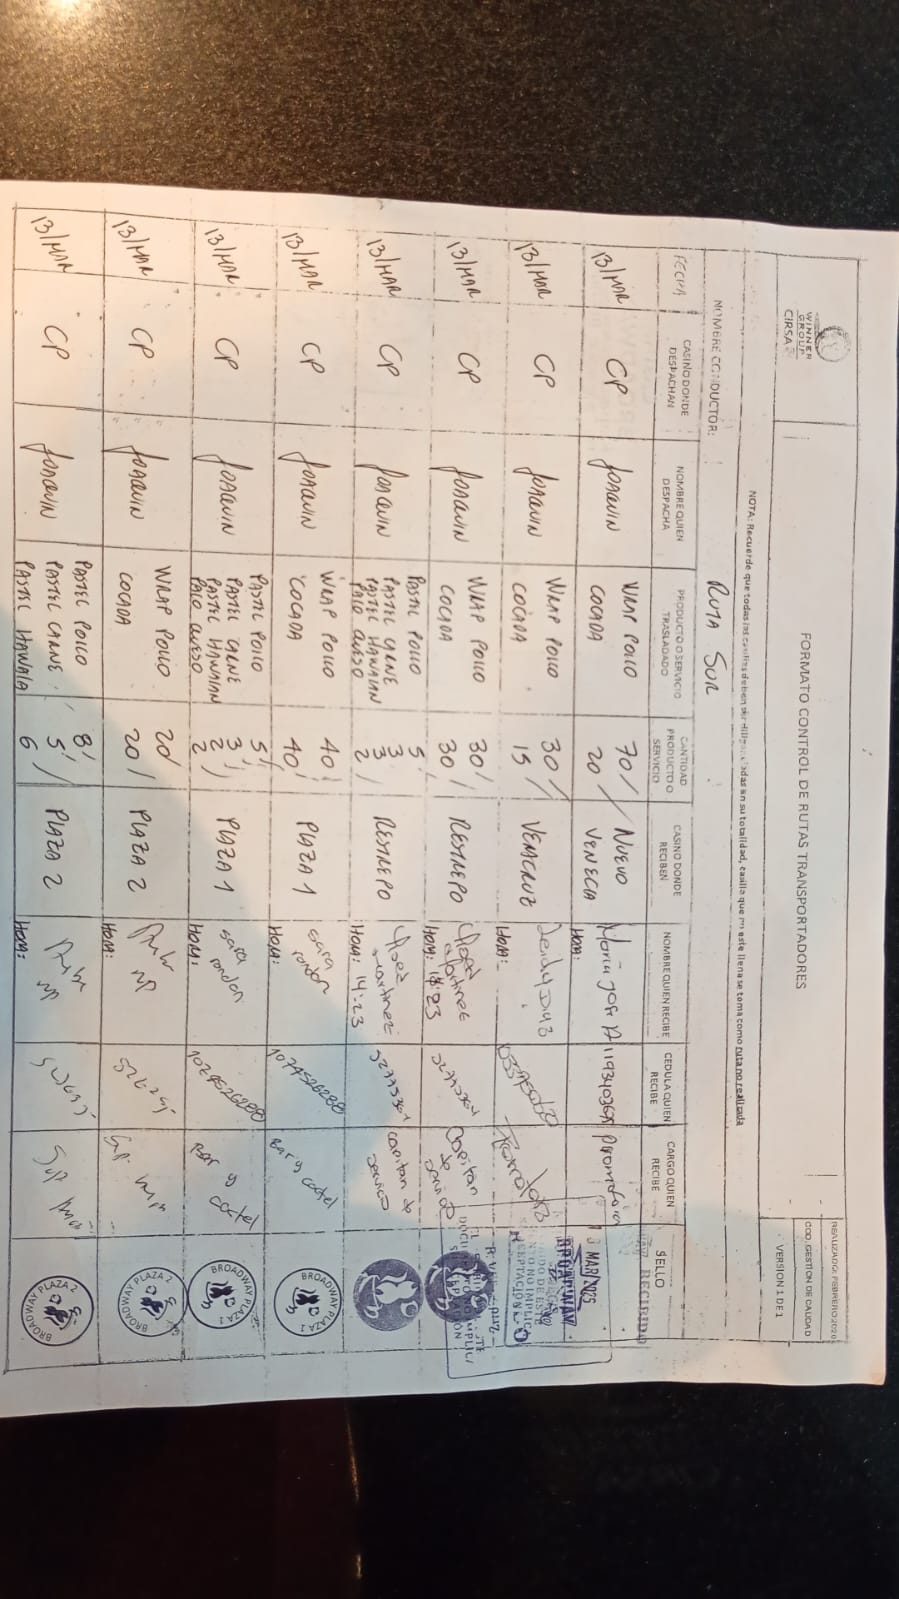 WINNER
GROUP
CIRSA
FORMATO CONTROL DE RUTAS TRANSPORTADORES
REALIZADO: FEBRERO 2020
COD. GESTION DE CALIDAD
VERSION 1 DE 1
NOTA: Recuerde que todas las casillas deben ser diligenciadas en su totalidad, casilla que no este llena se toma como ruta no realizada
NOMBRE CONDUCTOR: RUTA SUR
FECHA
CASINO DONDE DESPACHAN
NOMBRE QUIEN DESPACHA
PRODUCTO O SERVICIO TRASLADADO
CANTIDAD PRODUCTO O SERVICIO
CASINO DONDE RECIBEN
NOMBRE QUIEN RECIBE
CEDULA QUIEN RECIBE
CARGO QUIEN RECIBE
SELLO
13/MAR CP JOAQUIN WRAP POLLO 70 / NUEVO
COCADA 20 VENECIA
Maria jose
HORA:
MAR/2025
13/MAR CP JOAQUIN WRAP POLLO 30 / VERACRUZ
COCADA 15
Leidy Diaz
HORA:
13/MAR CP JOAQUIN WRAP POLLO 30 / RESTREPO
COCADA 30
martinez
HORA: 23
Capitan de servicio
13/MAR CP JOAQUIN PASTEL POLLO 5
PASTEL CARNE 3
PASTEL HAWAIAN 3 / RESTREPO
PALO QUESO 2
martinez
HORA: 14:23
capitan de servicio
13/MAR CP JOAQUIN WRAP POLLO 40 PLAZA 1
COCADA 40
sara rondon
HORA:
Bar y coctel
BROADWAY PLAZA 1
13/MAR CP JOAQUIN PASTEL POLLO 5
PASTEL CARNE 3
PASTEL HAWAIAN 2 / PLAZA 1
PALO QUESO 2
sara rondon
HORA:
Bar y coctel
BROADWAY PLAZA 1
13/MAR CP JOAQUIN WRAP POLLO 20 PLAZA 2
COCADA 20 /
HORA:
BROADWAY PLAZA 2
13/MAR CP JOAQUIN PASTEL POLLO 8
PASTEL CARNE 5 / PLAZA 2
PASTEL HAWAIA 6
HORA:
BROADWAY PLAZA 2